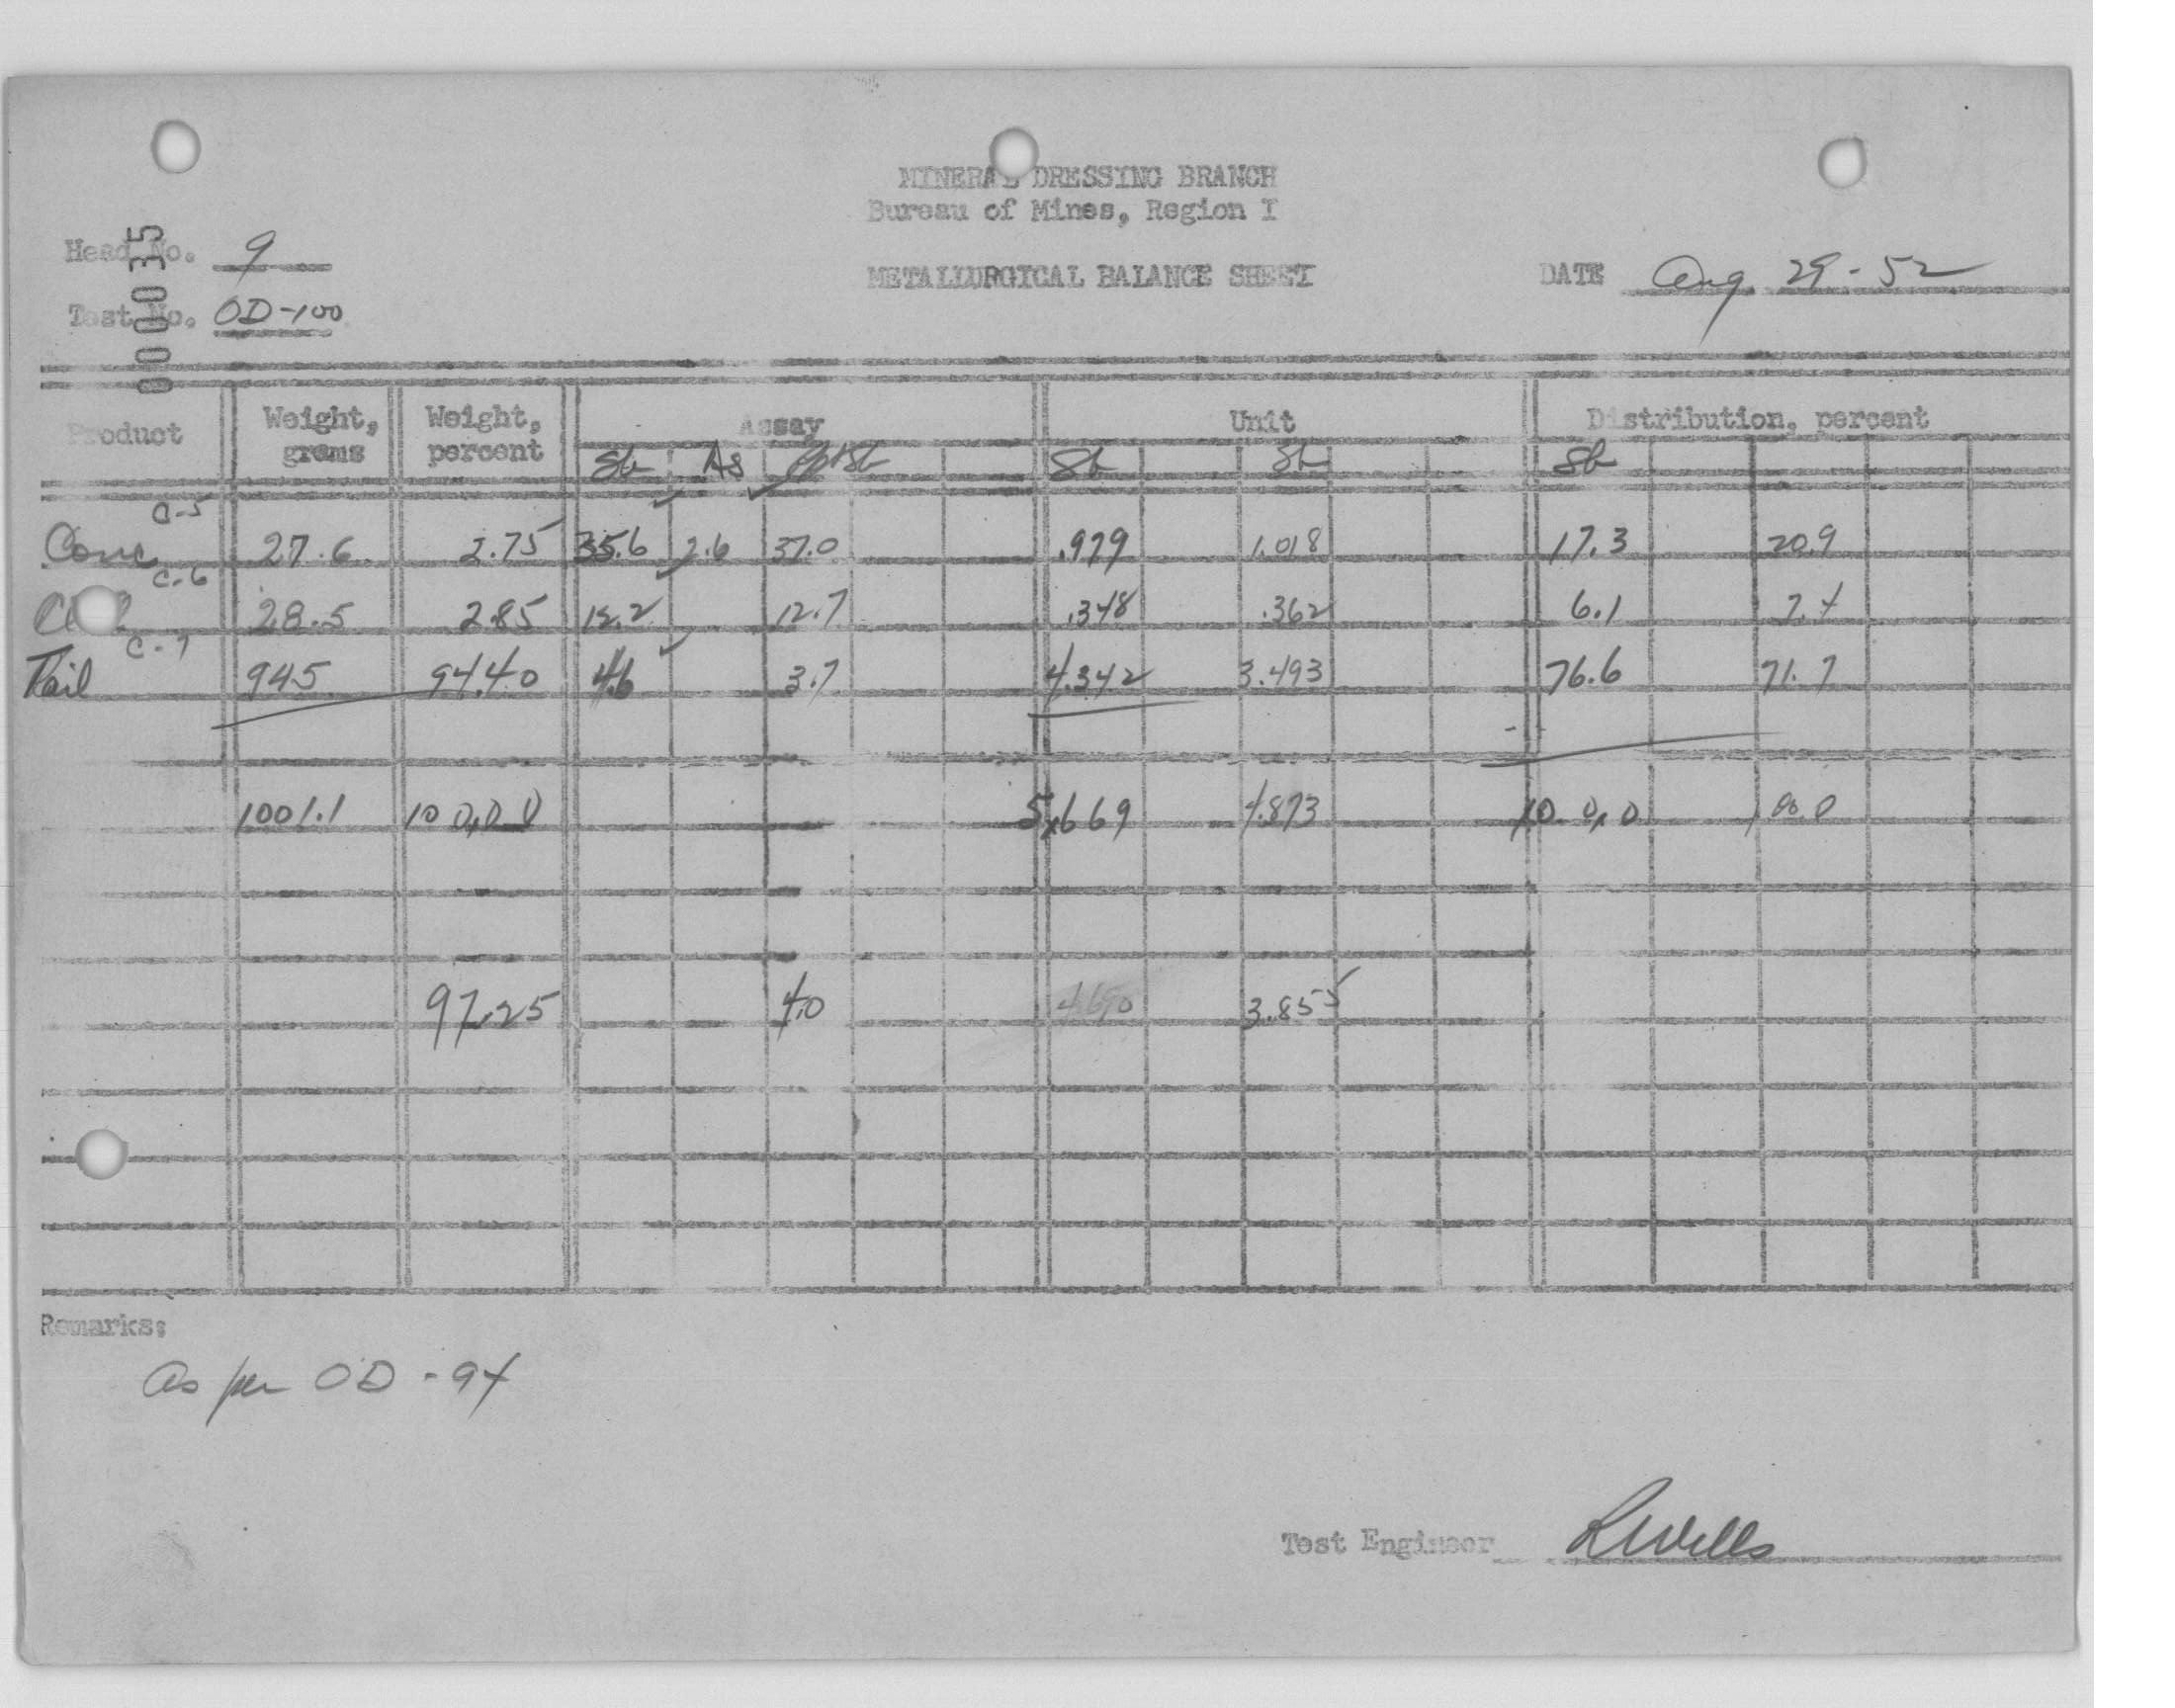 MINERAL DRESSING BRANCH
Bureau of Mines, Region I
METALLURGICAL BALANCE SHEET
Head No. 9
Test No. OD-100
DATE Aug. 29-52
000035
Product Weight, grams Weight, percent Assay Unit Distribution, percent
Sb As Sb Sb Sb
C-5
Conc 27.6 2.75 35.6 2.6 37.0 .979 1.018 17.3 20.9
C-6
28.5 2.85 12.2 12.7 .348 .362 6.1 7.4
C-7
Tail 945 94.40 4.6 3.7 4.342 3.493 76.6 71.7
1001.1 100.00 5.669 4.873 100.0 100.0
97.25 4.0 3.855
Remarks:
As per OD-94
Test Engineer RWells